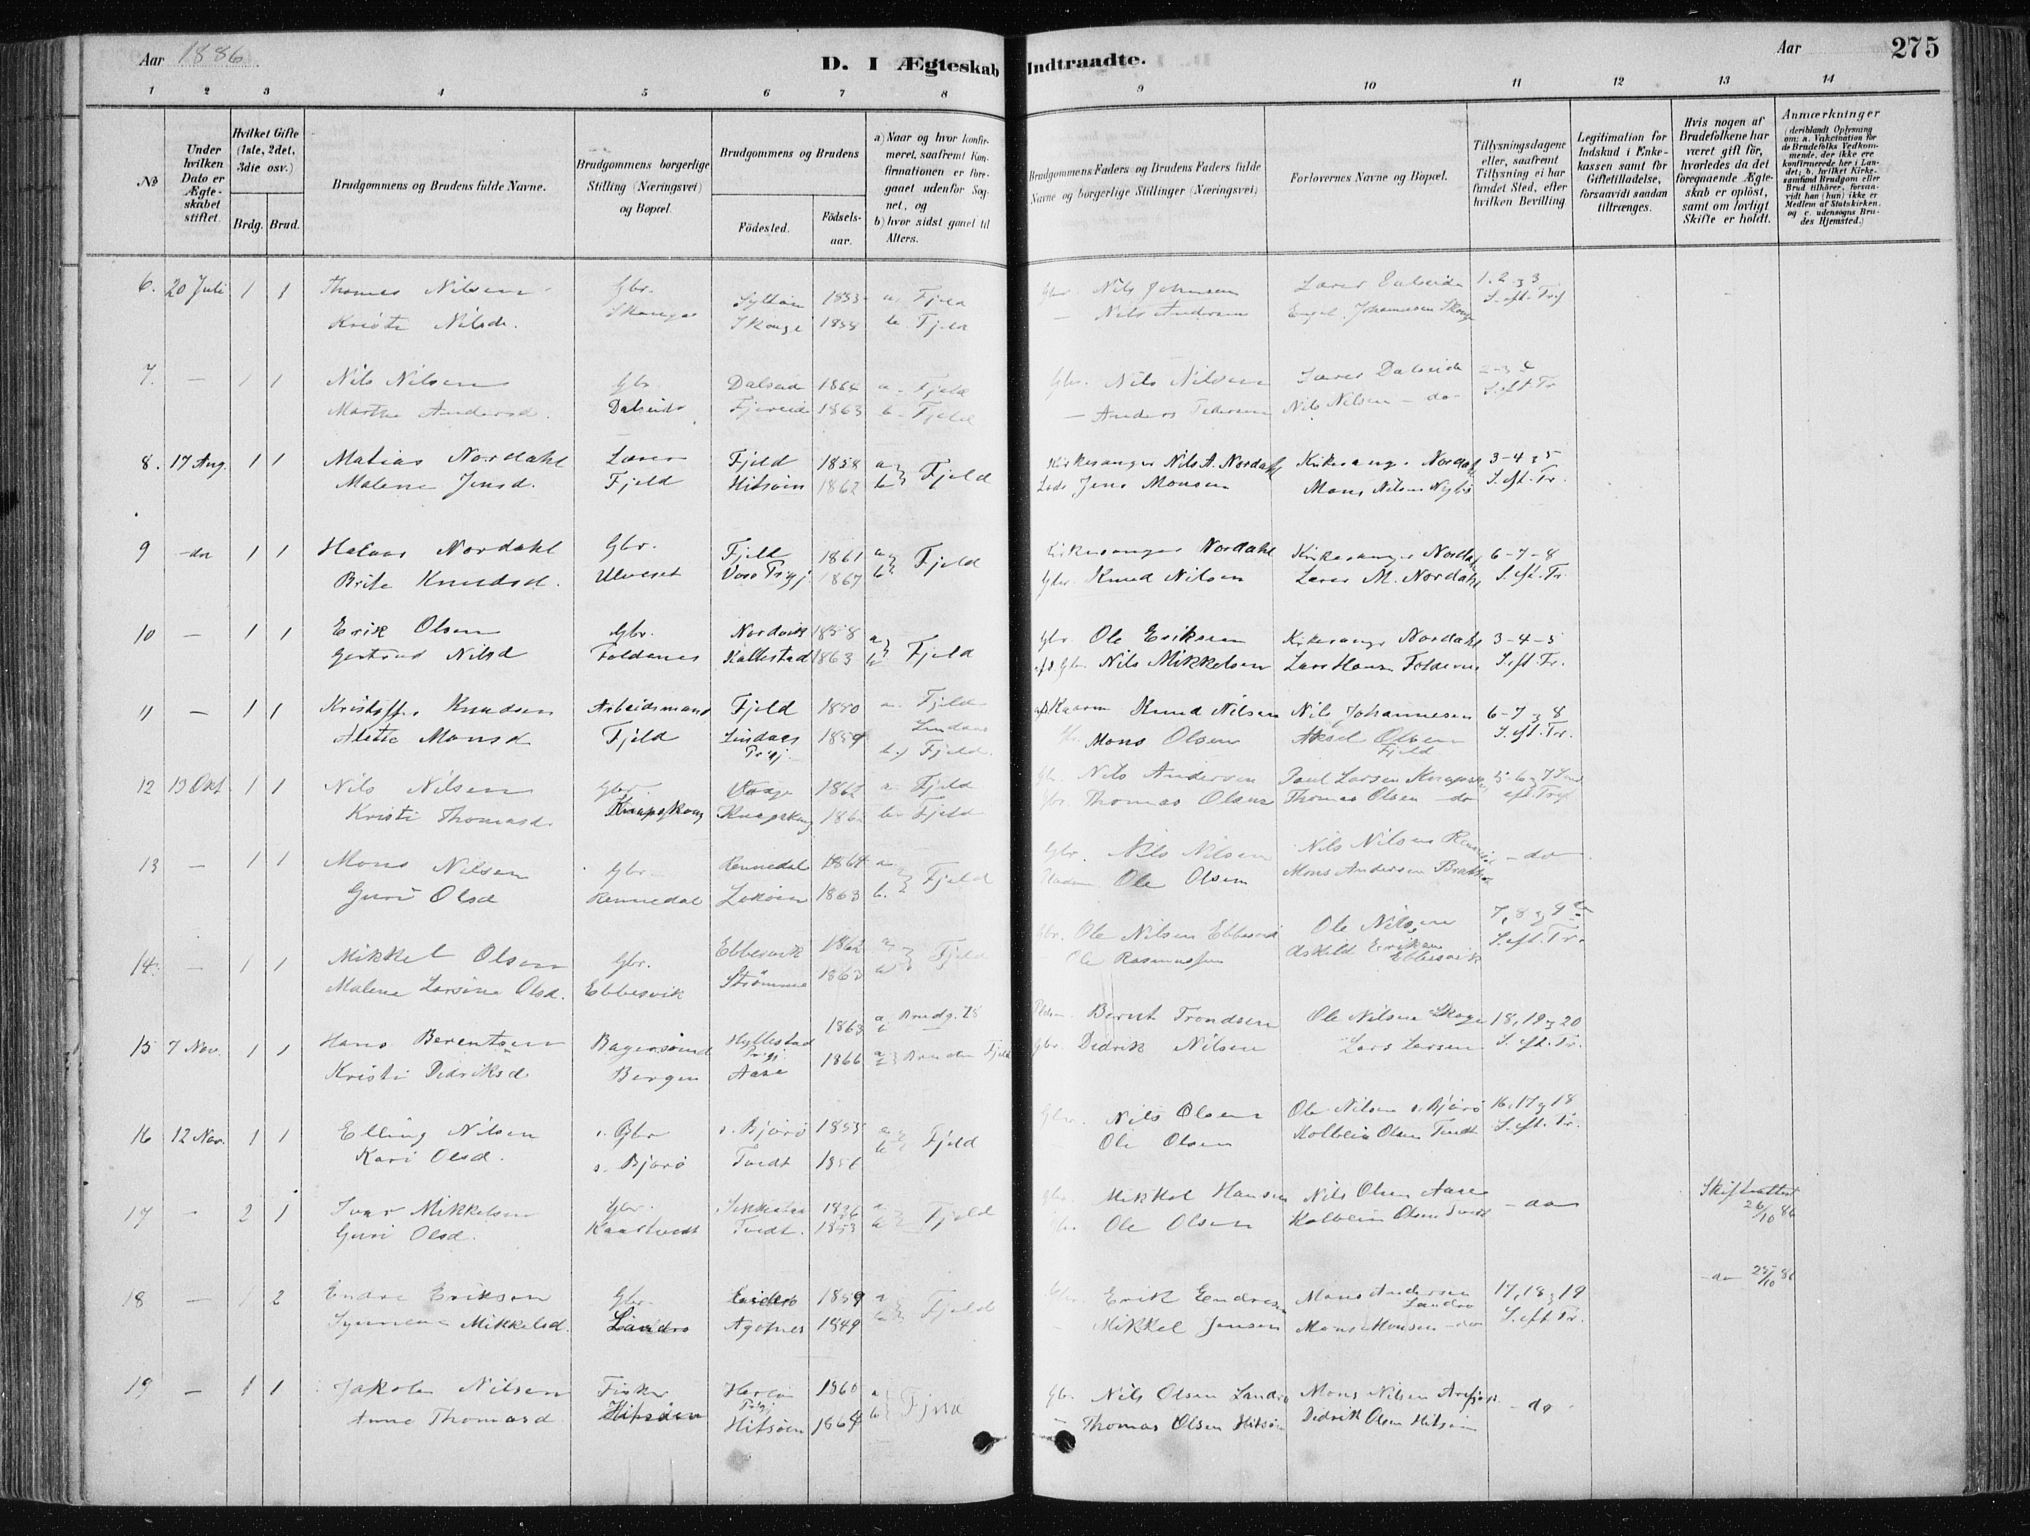 Aar 1886.
D. I Ægteskab Indtraadte.
Aar
275
1 2 3 4 5 6 7 8 9 10 11 12 13 14
№
Under hvilken Dato er Ægteskabet stiftet.
Hvilket Gifte (1ste, 2det, 3die osv.)
Brdg. Brud.
Brudgommens og Brudens fulde Navne.
Brudgommens borgerlige Stilling (Næringsvei) og Bopæl.
Brudgommens og Brudens
Födested.
Födsels-aar.
a) Naar og hvor konfirmeret, saafremt Konfirmationen er foregaaet udenfor Sognet, og
b) hvor sidst gaaet til Alters.
Brudgommens Faders og Brudens Faders fulde Navne og borgerlige Stillinger (Næringsvei)
Forlovernes Navne og Bopæl.
Tillysningsdagene eller, saafremt Tillysning ei har fundet Sted, efter hvilken Bevilling
Legitimation for Indskud i Enkekassen samt for Giftetilladelse, forsaavidt saadan tiltrænges.
Hvis nogen af Brudefolkene har været gift för, hvorledes da det foregaaende Ægteskab er oplöst, samt om lovligt Skifte er holdt.
Anmærkninger
(deriblandt Oplysning om: a. Vakcination for de Brudefolks Vedkommende, der ikke ere konfirmerede her i Landet; b. hvilket Kirkesamfund Brudgom eller Brud tilhörer, forsaavidt han (hun) ikke er Medlem af Statskirken, og c. udensogns Brudes Hjemsted.)
6. 20 Juli 1 1 Thomas Nilsen Gbr. 1853 a. Fjeld Gbr. Nils Johnsen Lærer 1. 2. & 3
Kristi Nilsd. Skauge Skauge 1858 b. Fjeld — Nils Andersen Engel Johannesen Skoge S. eft. Tr.
7. — 1 1 Nils Nilsen Gbr. Dalseid 1864 a. Fjeld Gbr. Nils Nilsen Lærer Dalseide
Marthe Andersd. Dalseide Fjæreide 1863 b. Fjeld — Anders Pedersen Nils Nilsen — do S. eft. Tr.
8. 17 Aug. 1 1 Matias Nordahl Lærer Fjeld 1858 a Kirkesanger Nils A. Nordahl Kirkesanger Nordahl 3-4 & 5
Malene Jensd. Fjeld Hitsöen 1862 b Fjeld Lods Jens Monsen Mons Nilsen S. eft. Tr.
9 -do 1 1 Nordahl Gbr. Fjeld 1861 a Kirkesanger Nordahl Kirkesanger Nordahl 6-7-8
Brite Knudsd. Ulveset Voss Prgj. 1867 b Fjeld Gbr. Knud Nilsen Lærer M. Nordahl S. eft. Tr.
10 — 1 1 Erik Olsen Gbr. Nordvik 1858 a Gbr. Ole Eriksen Kirkesanger Nordahl 3-4-5
Gertrud Nilsd Foldenes Kallestad 1863 b Fjeld afd. Gbr. Nils Mikkelsen Lars Hansen Foldenes S. eft. Tr.
11 — 1 1 Kristoffer Knudsen Arbeidsmand Fjeld 1850 a. Fjeld Knud Nilsen Nils Johannesen 6-7 & 8
Alette Monsd Fjeld Lindaas Prgj. 1859 Lindaas b.) Fjeld Gbr. Mons Olsen Aksel Olsen Fjeld S. eft. Tr.
12 13 Okt. 1 1 Nils Nilsen Gbr. Vaage 1862 a. Fjeld Gbr. Nils Andersen Poul Larsen 5-6 & 7 S.
Kristi Thomasd. Knapskoug Knapskoug b. Fjeld Gbr. Thomas Olsen Thomas Olsen — do eft. Tr.
13 — 1 1 Mons Nilsen Gbr. Rennedal 1864 a Gbr. Nils Nilsen Nils Nilsen — do
Guri Olsd Rennedal 1863 b. Fjeld Ole Olsen Mons Andersen
14. — 1 1 Mikkel Olsen Gbr. Ebbesvik 1862 a Gbr. Ole Nilsen Ebbesvik Ole Nilsen 7, 8 & 9
Malene Larsine Olsd. Ebbesvik Strömme 1863 b Fjeld Ole Rasmussen Askild Eriksen Ebbesvik S. eft. Tr.
15 7 Nov. 1 1 Hans Berentsen Bagersvend Hyllestad Prgj. 1863 a b Brudg. Berent Trondsen Ole Nilsen Skoge 18, 19 & 20
Kristi Didriksd Bergen Aase 1866 Bruden Fjeld Gbr. Didrik Nilsen Lars Larsen S. eft. Tr.
16 12 Nov. 1 1 Elling Nilsen Gbr s. Bjorö 1853 a Gbr. Nils Olsen Ole Nilsen s. Bjorö 16, 17 & 18
Kari Olsd. s. Bjorö Tvedt b Fjeld Ole Olsen Kolbein Olsen Tvedt S. eft. Tr.
17 — 2 1 Ivar Mikkelsen Gbr. 1826 a Gbr. Mikkel Hansen Nils Olsen Aase — do Skifteattest 26/10 86
Guri Olsd. Kaartvedt Tvedt. 1853 b Fjeld Gbr. Ole Olsen Kolbein Olsen Tvedt
18 — 1 2 Endre Eriksen Gbr. Landro 1859 a Gbr. Erik Endresen Mons Andersen Landro 17, 18 & 19 — do
Mikkelsd. Landro Agotnes 1849 b Fjeld Mikkel Jensen Mons Monsen — do S. eft. Tr.
19 — 1 1 Jakob Nilsen Fisker Prgj 1860 a Gbr. Nils Olsen Landro Mons Nilsen — do
Anne Thomasd. Hitsöen Hitsöen 1864 b Fjeld — Thomas Olsen Hitsöen Didrik Olsen Hitsöen